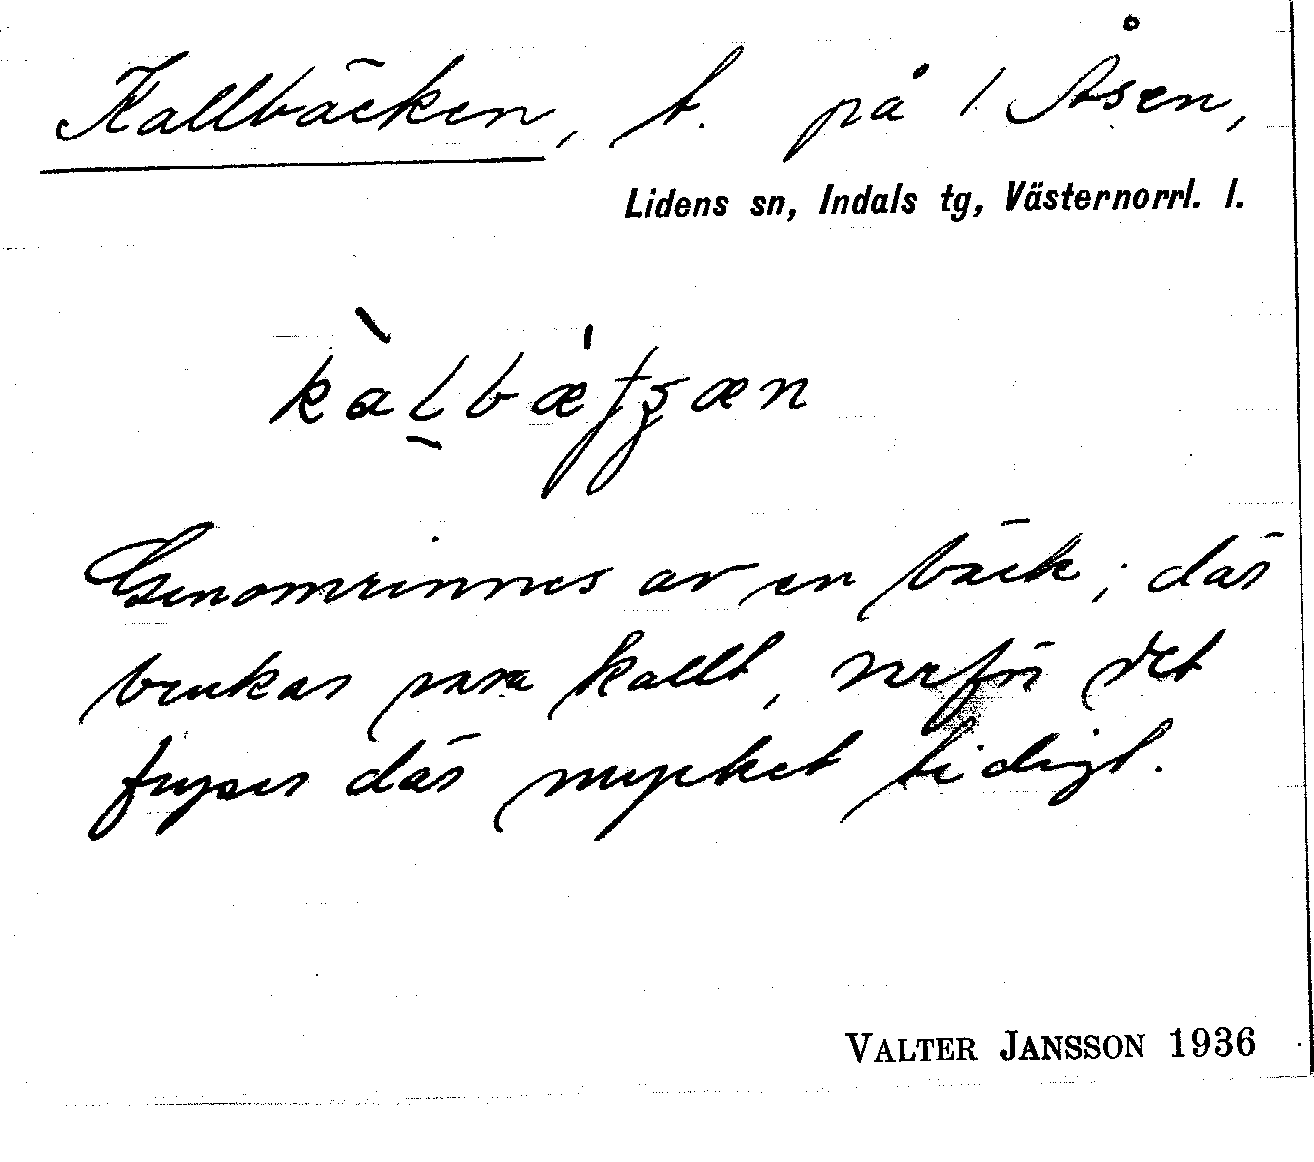 Kallbäcken, t. på 1 Åsen,
Lidens sn, Indals tg, Västernorrl. l.
Genomrinnes av en bäck; där
brukar vara kallt, varför det
fryser där mycket tidigt.
VALTER JANSSON 1936